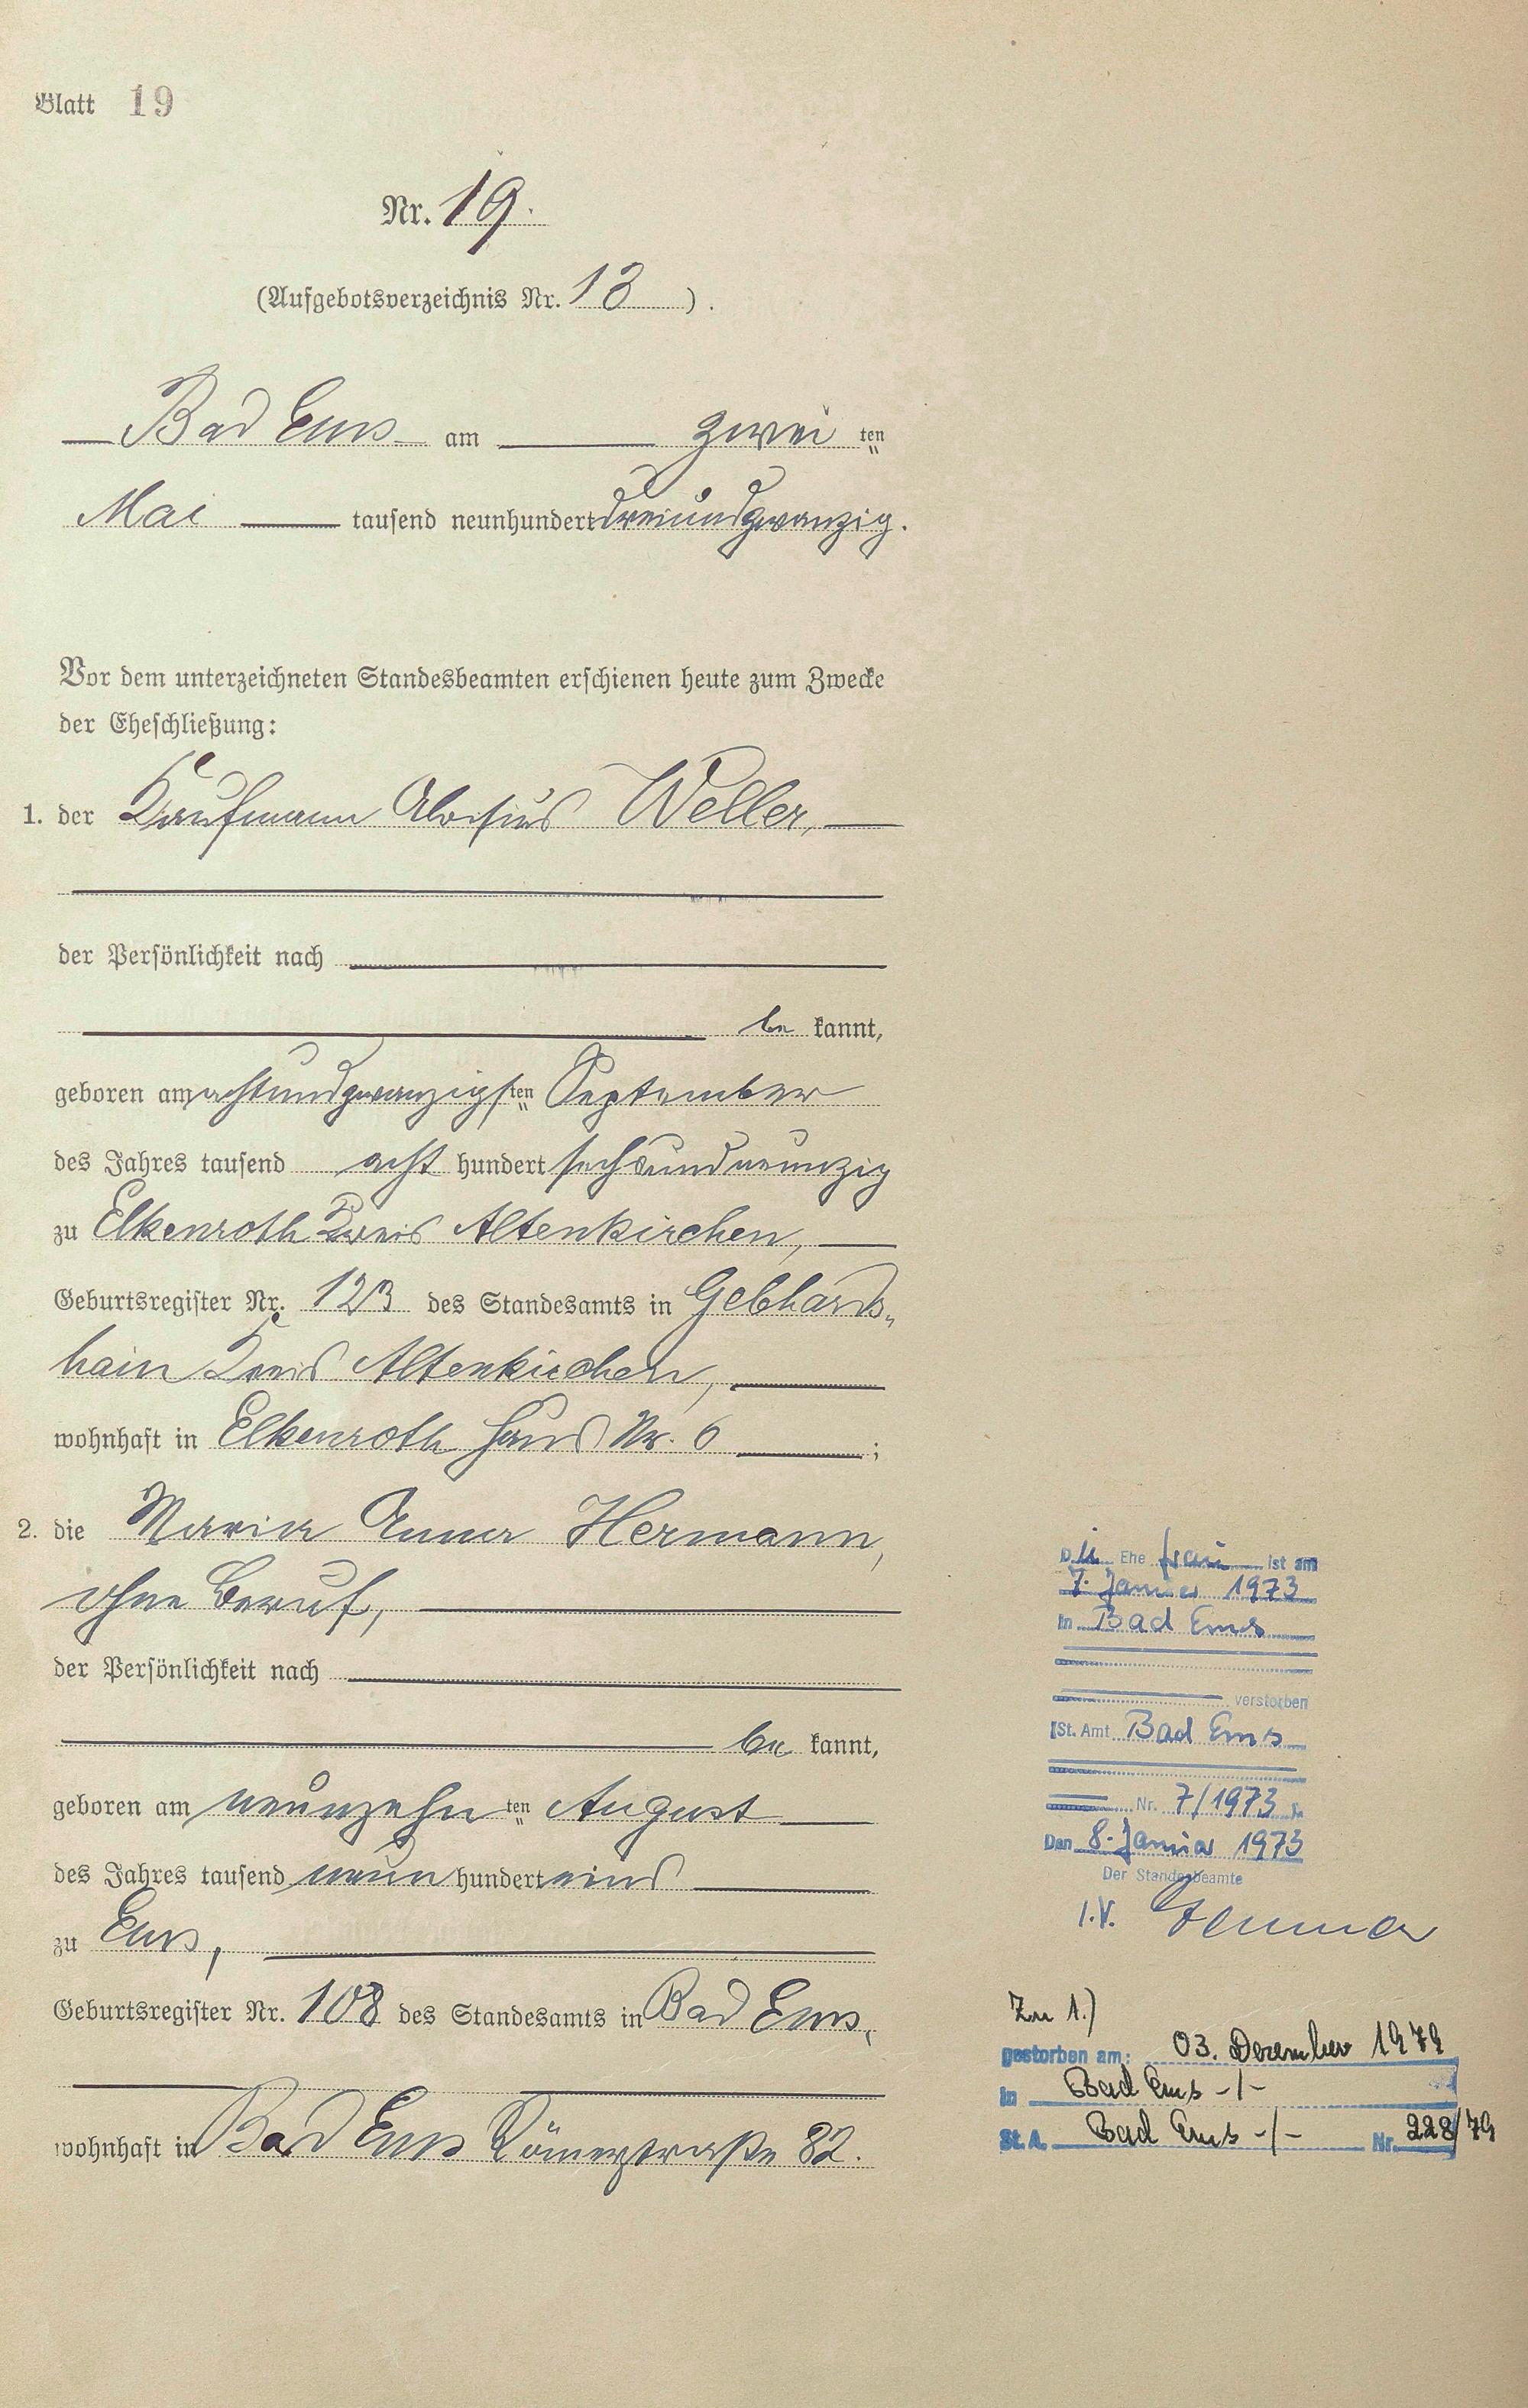 Blatt 19
Nr. 19.
(Aufgebotsverzeichnis Nr. 13).
Bad Ems am zwei ten
Mai tausend neunhundert dreiundzwanzig.
Vor dem unterzeichneten Standesbeamten erschienen heute zum Zwecke
der Eheschließung:
1. der Kaufmann Aloisius Weller,
der Persönlichkeit nach
be kannt,
geboren am achtundzwanzigsten September
des Jahres tausend acht hundert sechsundneunzig
zu Elkenroth Kreis Altenkirchen,
Geburtsregister Nr. 123 des Standesamts in Gebhards-
hain Kreis Altenkirchen,
wohnhaft in Elkenroth Haus Nr. 6 ;
2. die Maria Anna Hermann,
ohne Beruf,
der Persönlichkeit nach
be kannt,
geboren am neunzehn ten August
des Jahres tausend neun hundert eins
zu Ems,
Geburtsregister Nr. 108 des Standesamts in Bad Ems,
wohnhaft in Bad Ems Römerstraße 82.
Die Ehefrau ist am
7. Januar 1973
in Bad Ems
verstorben
St. Amt Bad Ems
Nr. 7/1973
Den 8. Januar 1973
Der Standesbeamte
I.V.
Zu 1.)
gestorben am: 03. Dezember 1979
in Bad Ems -/-
St. A. Bad Ems -/- Nr. 228/79